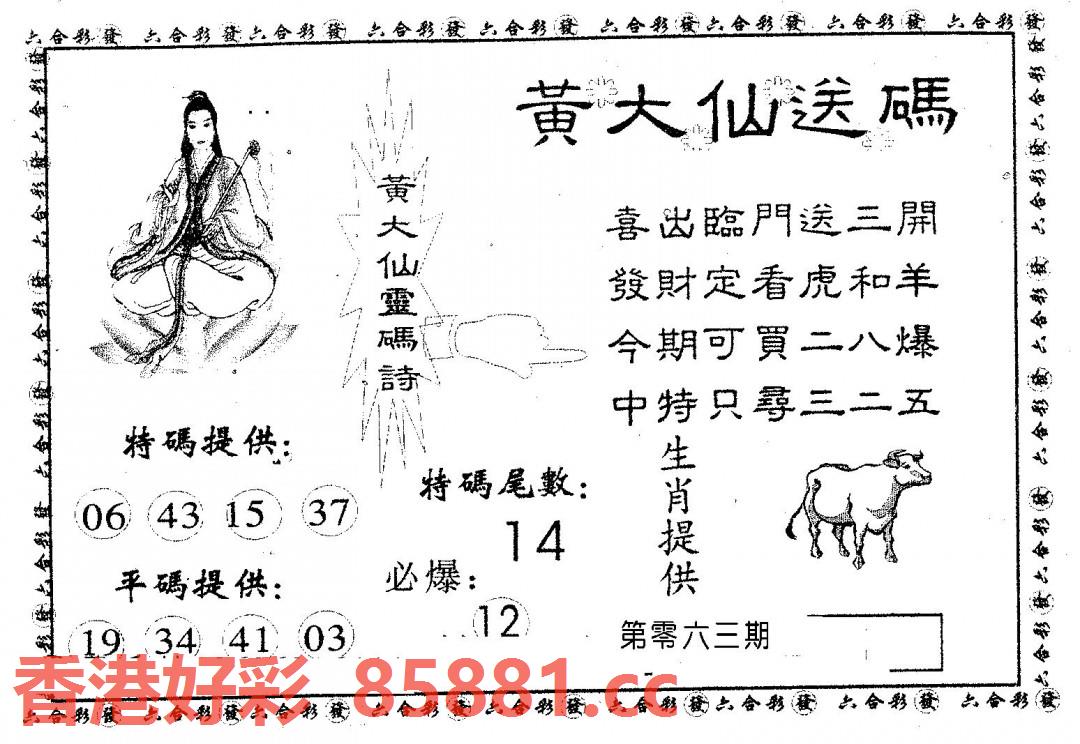 六合彩發 六合彩發 六合彩發 六合彩發 六合彩發 六合彩發 六合彩發 六合彩發 六合彩發
黃大仙送碼
黃大仙靈碼詩
喜出臨門送三開
發財定看虎和羊
今期可買二八爆
中特只尋三二五
特碼提供：
06 43 15 37
平碼提供：
19 34 41 03
特碼尾數：
14
必爆：
12
生肖提供
第零六三期
香港好彩 85881.cc
六合彩發 六合彩發 六合彩發 六合彩發 六合彩發 六合彩發 六合彩發 六合彩發 六合彩發